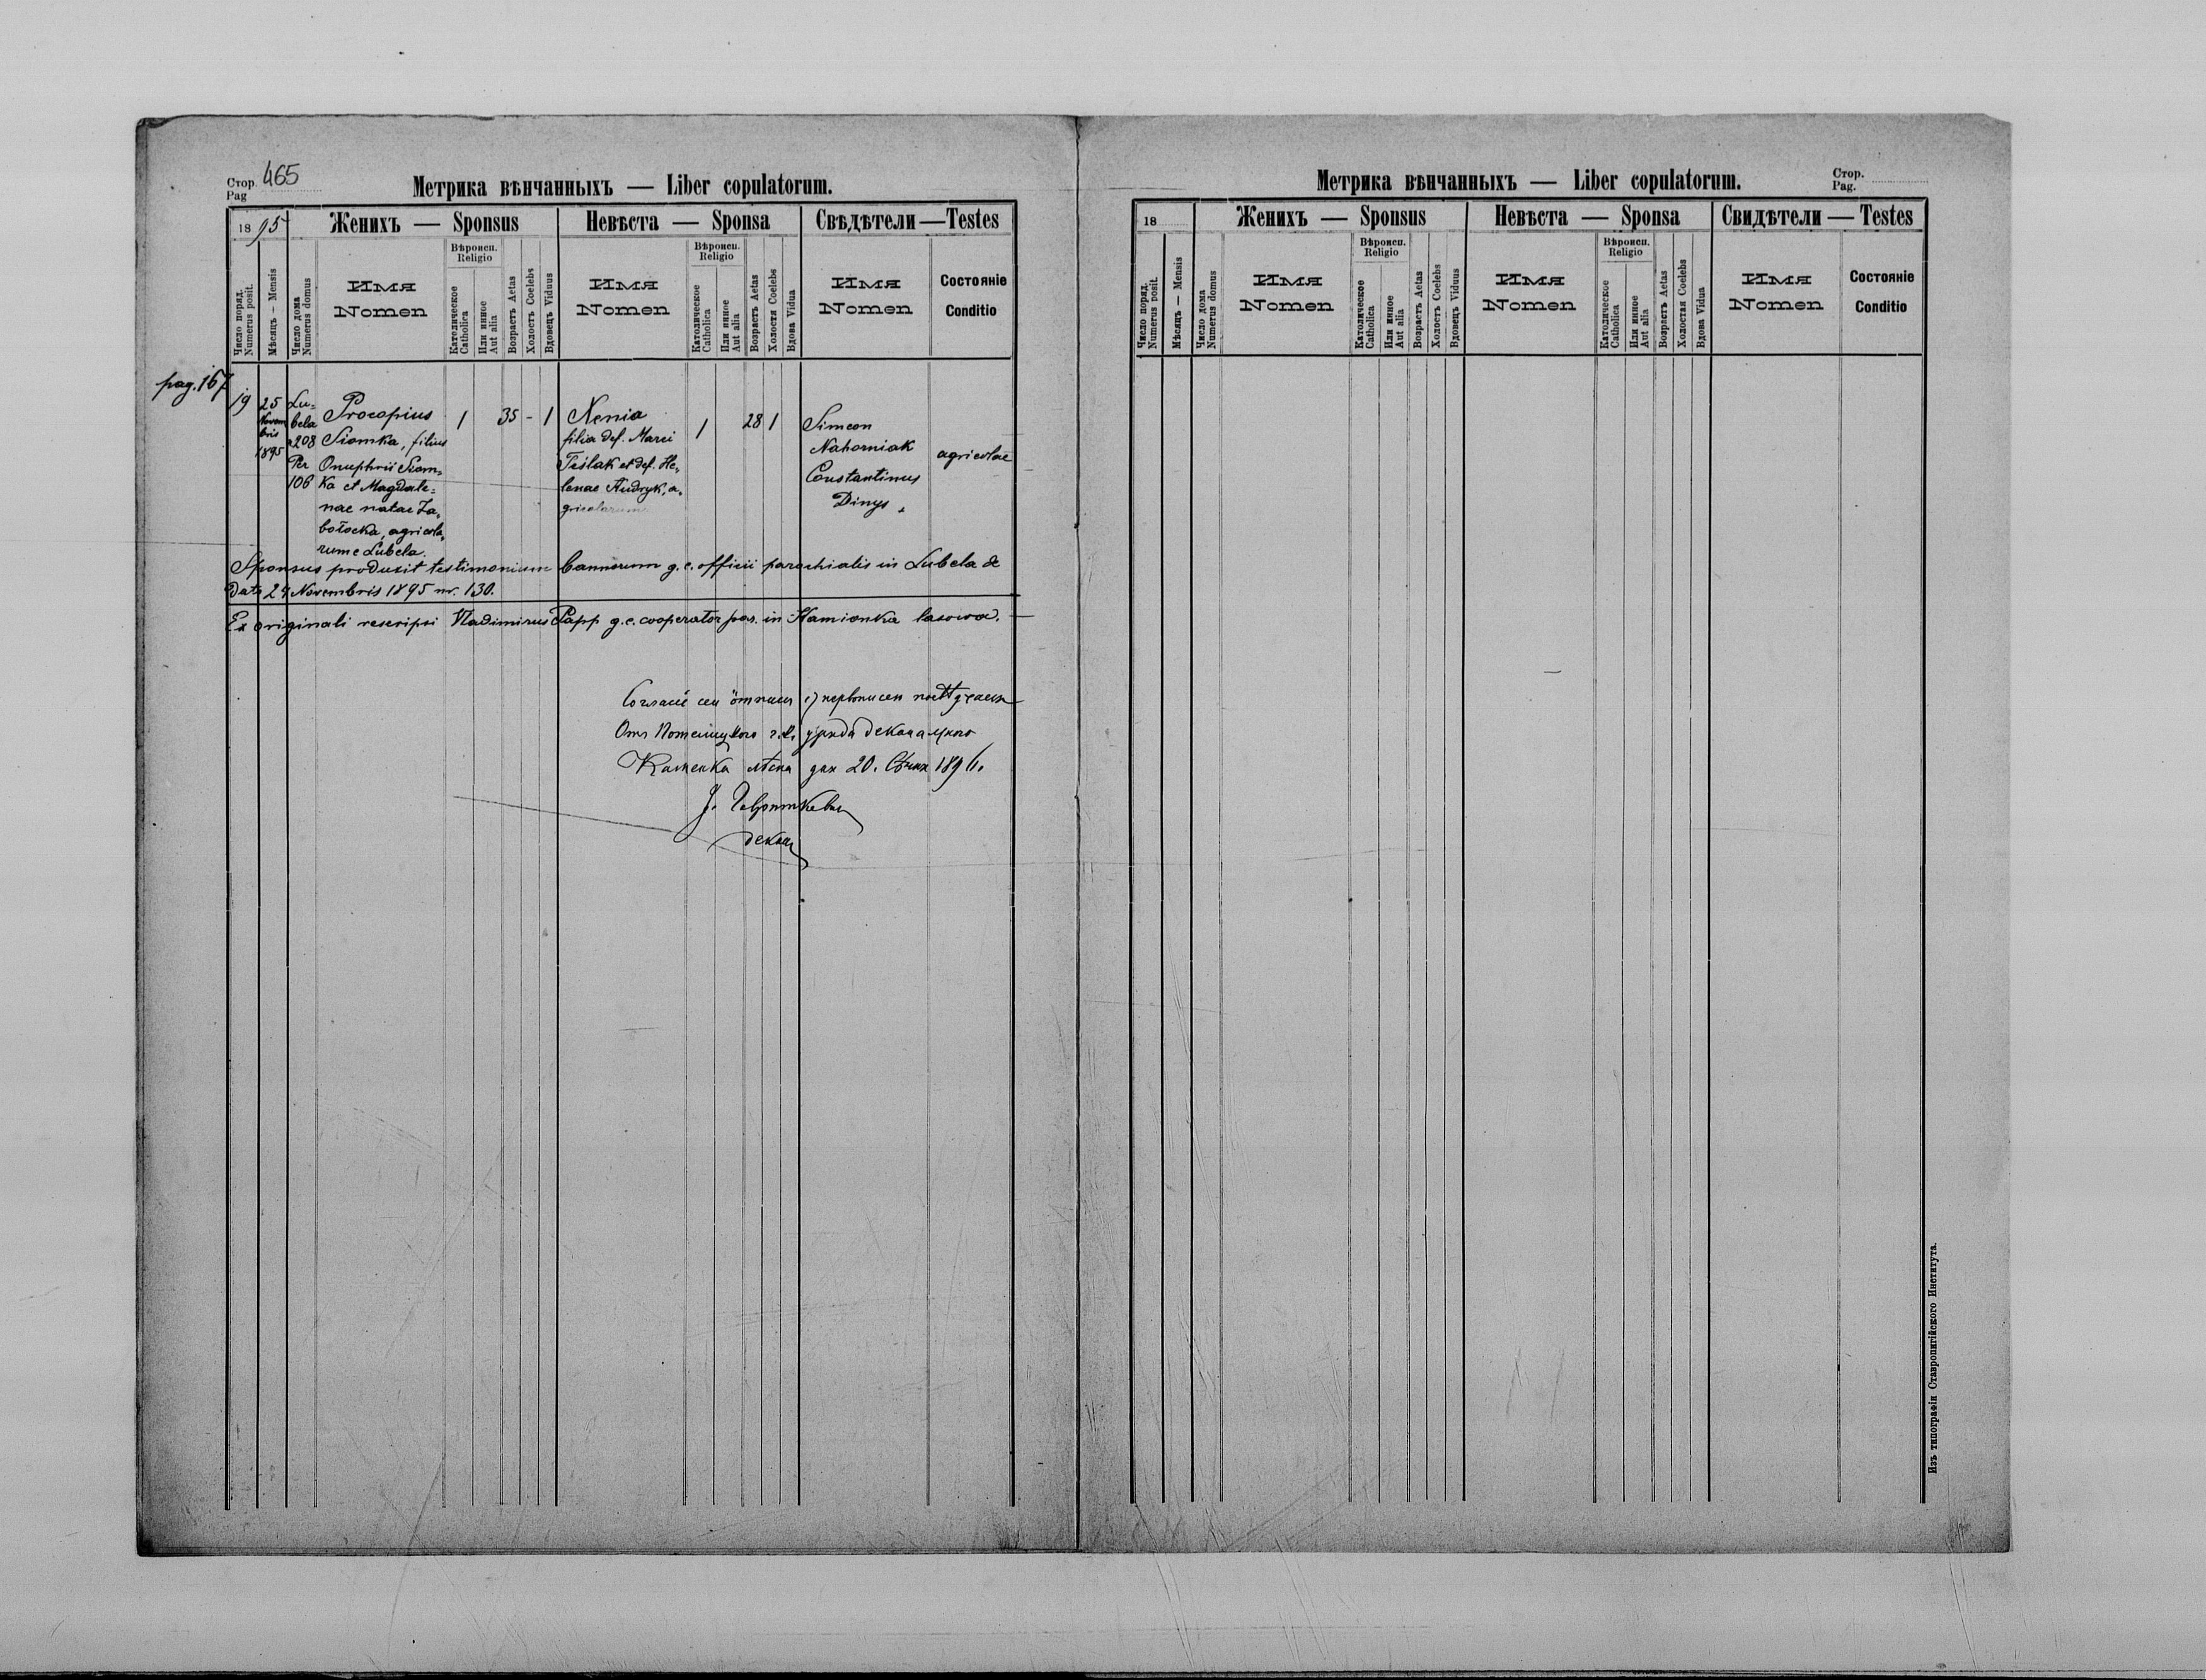 Стор. 465
Pag
Метрика вѣнчанныхъ — Liber copulatorum.
1895
Женихъ — Sponsus
Невѣста — Sponsa
Свѣдѣтели — Testes
Число поряд. Numerus posit.
Мѣсяцъ — Mensis
Число дома Numerus domus
Имя
Nomen
Вѣроисп.
Religio
Католическое Catholica
Или инное Aut alia
Возрастъ Aetas
Холостъ Coelebs
Вдовецъ Viduus
Имя
Nomen
Вѣроисп.
Religio
Католическое Catholica
Или инное Aut alia
Возрастъ Aetas
Холостя Coelebs
Вдова Vidua
Имя
Nomen
Состояніе
Conditio
pag. 167
19
25
Novem
bris
1895
Lu=
bela
208
Per
106
Procopius
Siomka, filius
Onuphrii Siom=
ka et Magdale=
nae natae Za=
bołocka, agricola=
rum e Lubela.
1 35 - 1
Xenia
filia def. Marci
Teślak et def. He=
lenae Andryk, a=
gricolarum
1 28 1
Simeon
Nahorniak
Constantinus
Dinys
agricolae
Sponsus produxit testimonium bannorum g. c. officii parochialis in Lubela de
dato 24 Novembris 1895 nr. 130.
Ex originali rescripsi Vladimirus Papp g. c. cooperator par. in Kamionka lasowa.
деканатного
Каменка лѣсна дня 20. Сѣчня 1896.
декан
Метрика вѣнчанныхъ — Liber copulatorum.
Стор.
Pag.
18
Женихъ — Sponsus
Невѣста — Sponsa
Свидѣтели — Testes
Число поряд. Numerus posit.
Мѣсяцъ — Mensis
Число дома Numerus domus
Имя
Nomen
Вѣроисп.
Religio
Католическое Catholica
Или инное Aut alia
Возрастъ Aetas
Холостъ Coelebs
Вдовецъ Viduus
Имя
Nomen
Вѣроисп.
Religio
Католическое Catholica
Или инное Aut alia
Возрастъ Aetas
Холостая Coelebs
Вдова Vidua
Имя
Nomen
Состояніе
Conditio
Изъ типографіи Ставропигійского Института.